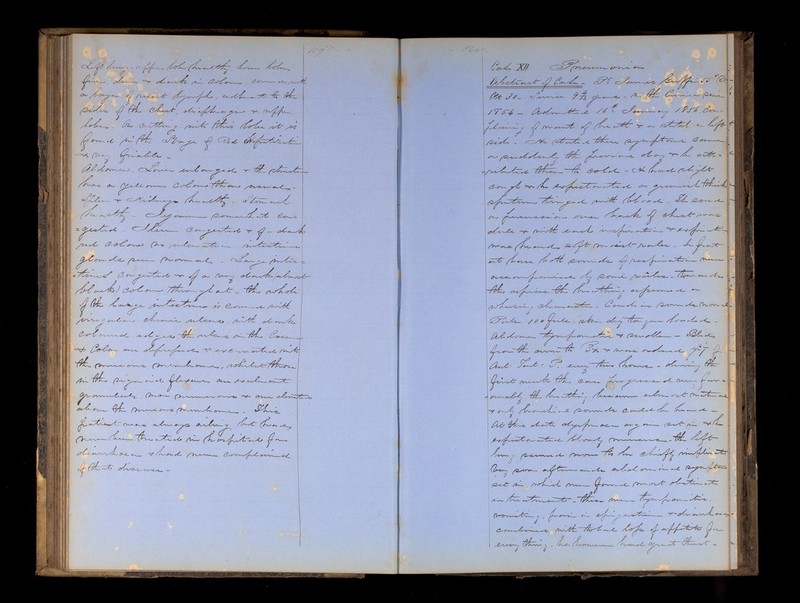 Left lung, upper lobe healthy lower lobe
firm & dark in colour covered with
a layer of recent lymph, adherent to the
side of the chest, diaphragm & upper
lobe. On cutting into this lobe it is
found in the Stage of Red Hepatization
& very friable.
Abdomen. Liver enlarged & the structure
has a yellower colour than usual.
Spleen & Kidneys healthy. Stomach
healthy. Jejunum somewhat con
gested. Ileum congested & of a dark
red colour no ulceration intestinal
glands seem normal. Large intes
tines congested & of a very dark almost
black colour throughout. The whole
of the large intestine is covered with
irregular chronic ulcers with dark
coloured edges the ulcers in the Coecum
& Colon are depressed & excavated into
the mucous membrane, whilst those
in the sigmoid flexure are exuberant
granulating more numerous & are elevated
above the mucous membrane. This
patient was always ailing, but he was
never been treated in hospital for
diarrhoea & had never complained
of that disease.
Case XII Pneumonia
Abstract of Case. Pt James
30. Service 9 4/12 years in the
1856 Admitted 16th January 1856
complaining of want of breath & a stitch in left
side. He stated these symptoms came
on suddenly the previous day & he attri
buted them to cold. He had slight
cough & he expectorated a greenish thick
sputum tinged with blood. The sound
on percussion over back of chest was
dull & with each inspiration & expiration
was heard soft moist rales. In front
at base both sounds of respiration were
accompanied by some rales. Towards
the apices the breathing assumed a
wheezing character. Cardiac sounds normal
Pulse 100 full, skin dry tongue loaded.
Abdomen tympanitic & swollen. Bled
from the arm to
Ant. Tart. every two hours. During the
first week the case progressed very favour
ably, the breathing became almost natural
& only bronchial sounds could be heard.
At this date dyspnoea again set in & he
expectorated bloody mucus. the left
lung seemed more to be chiefly implicated
Very soon afterwards abdominal symptoms
set in, which were found most obstinate
in treatment. these were tympanitis
vomiting, pain in epigastrium & diarrhoea
combined with total loss of appetite for
everything, he however had great thirst.